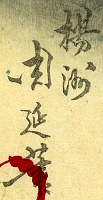 楊洲
周延筆